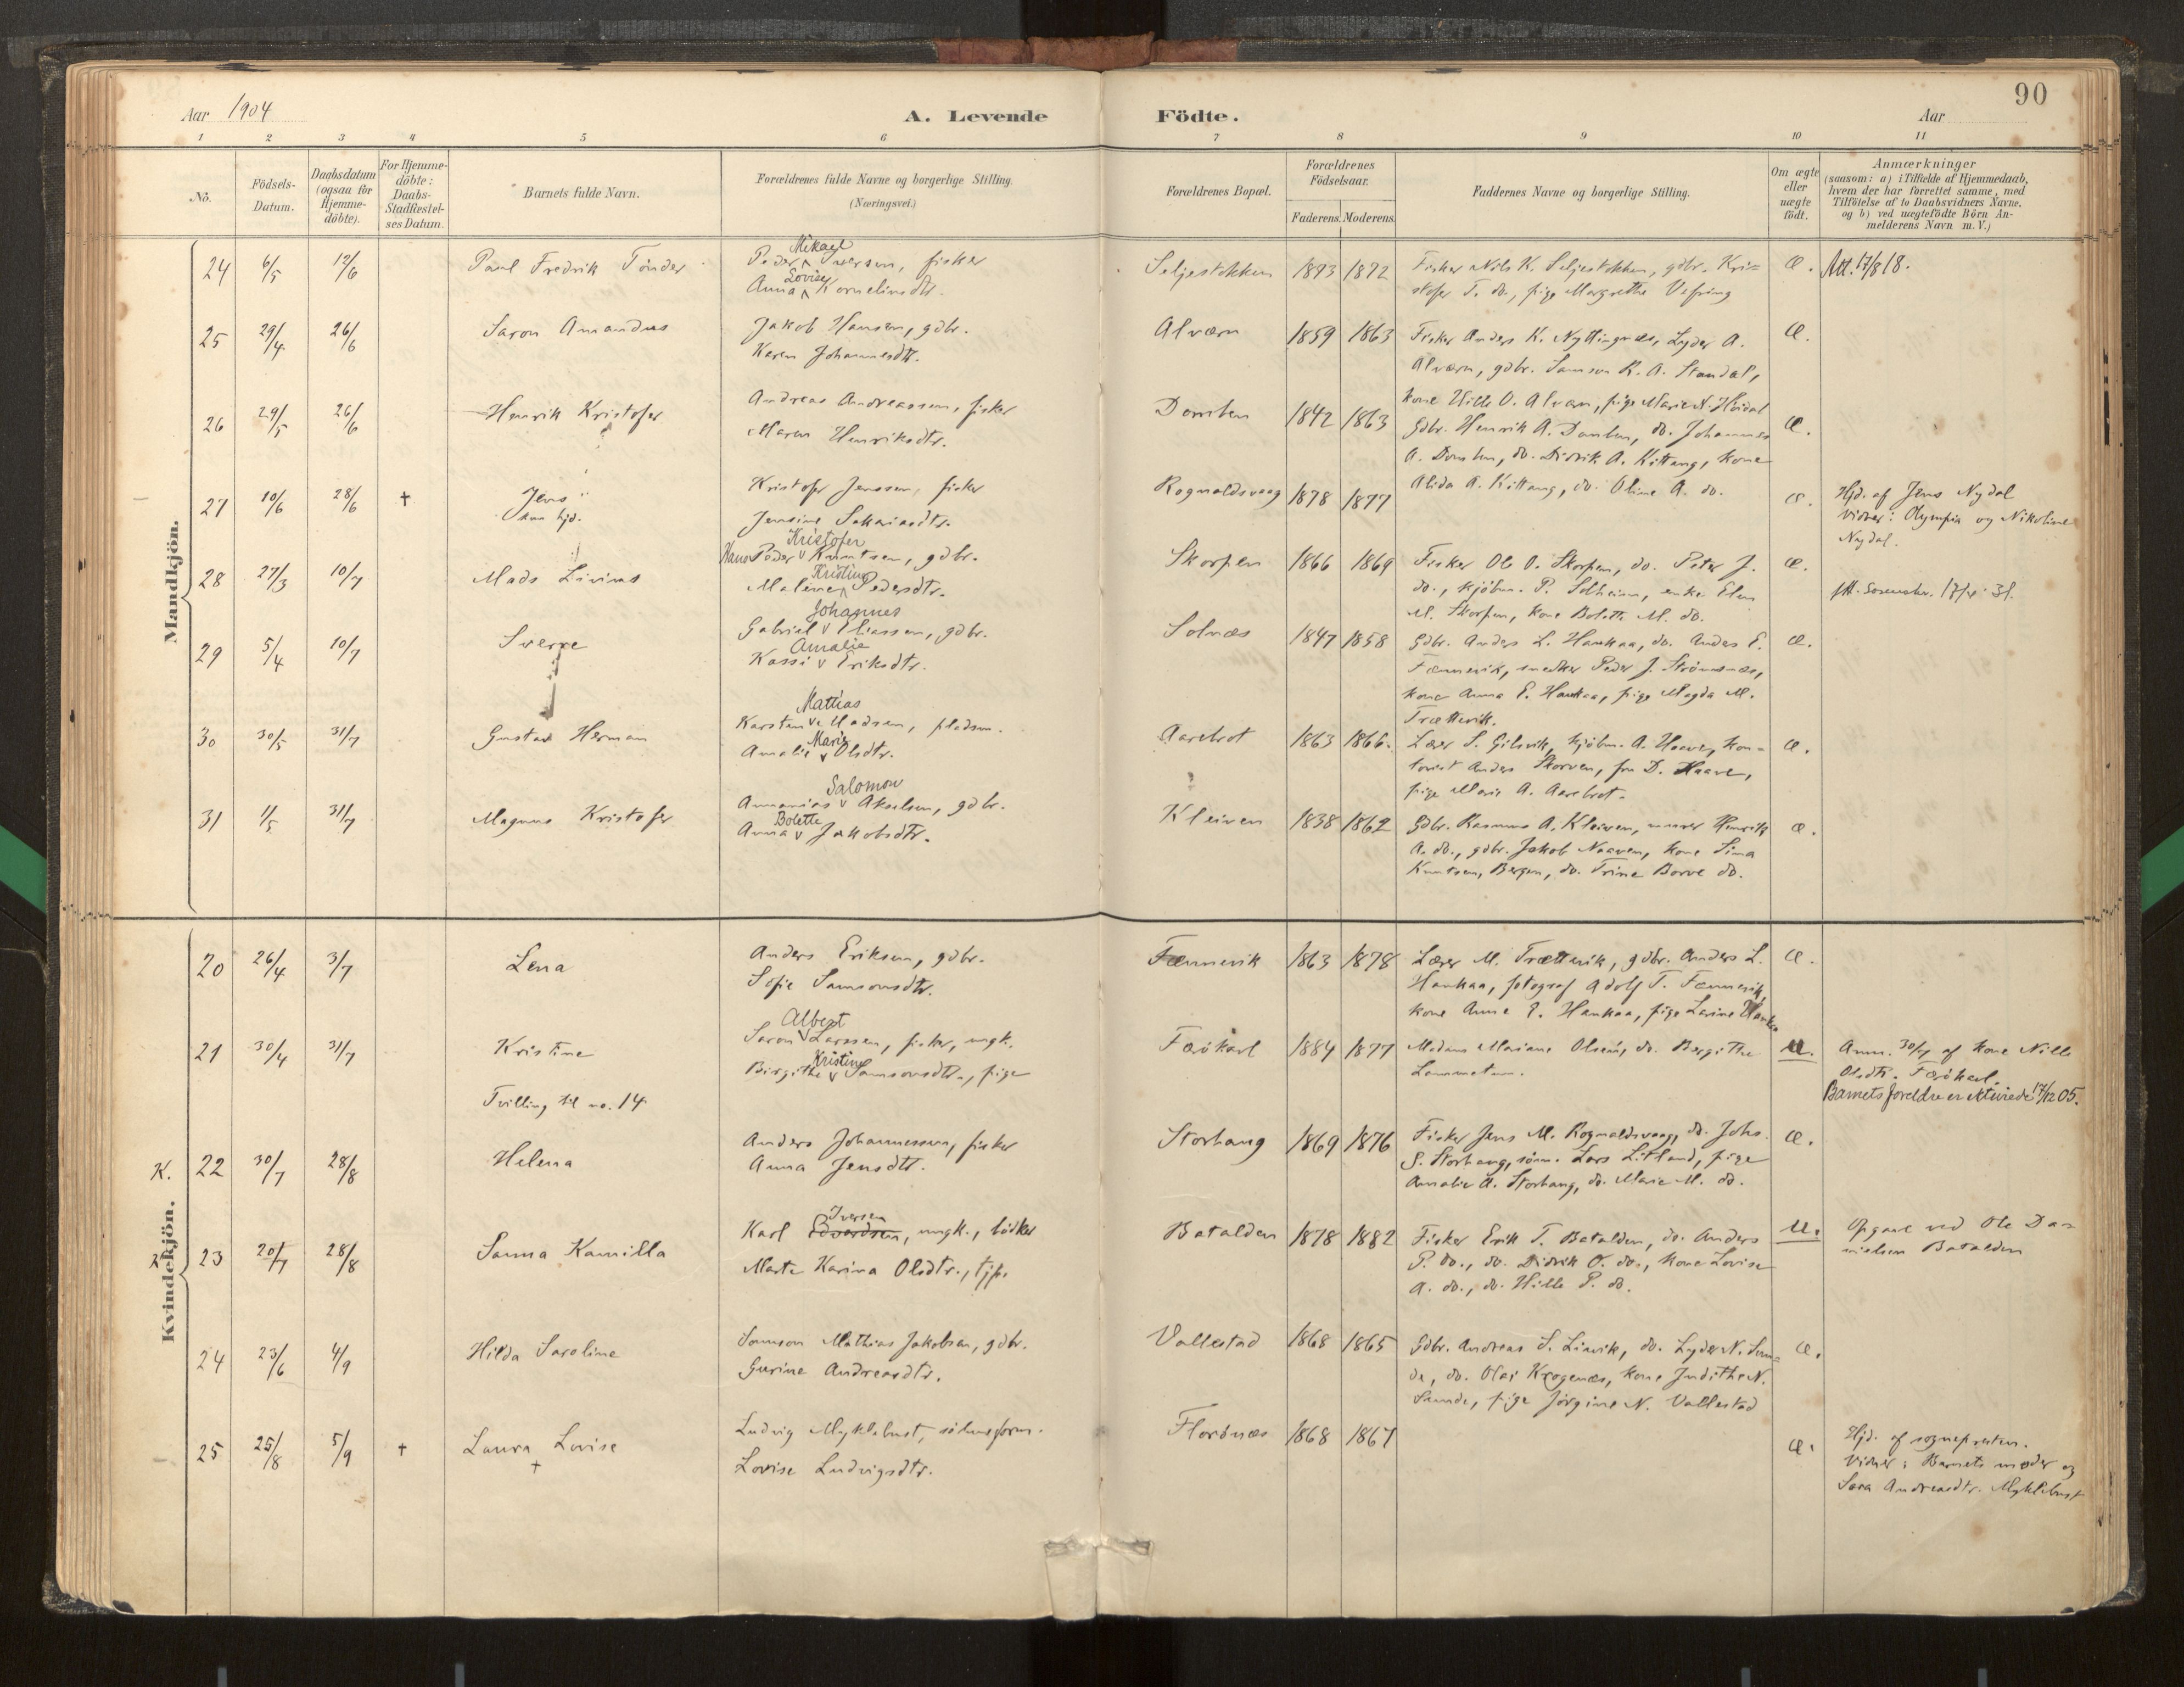 90
Aar 1904
A. Levende
Födte.
Aar
1 2 3 4 5 6 7 8 9 10 11
No.
Födsels-
Datum.
Daabsdatum
(ogsaa for
Hjemme-
döbte).
For Hjemme-
döbte:
Daabs-
Stadfæstel-
ses Datum.
Barnets fulde Navn.
Forældrenes fulde Navne og borgerlige Stilling.
(Næringsvei.)
Forældrenes Bopæl.
Forældrenes
Födselsaar.
Faderens. Moderens.
Faddernes Navne og borgerlige Stilling.
Om ægte
eller
uægte
födt.
Anmærkninger
(saasom: a) i Tilfælde af Hjemmedaab,
hvem der har forrettet samme, med
Tilföielse af to Daabsvidners Navne,
og b) ved uægtefödte Börn An-
melderens Navn m. V.)
Mandkjön.
24 6/5 12/6 Paul Fredrik Tönder
Mikael
Peder Iversen, fisker
Lovise
Anna Korneliusdtr.
Seljestokken 1873 1872
Fisker Nils K. Seljestokken, gdbr. Kri-
stofer T. do., pige Margrethe Vefring
Æ. Att. 17/8 18.
25 29/4 26/6 Saron Amandus
Jakob Hansen, gdbr.
Karen Johannesdtr.
Alværn 1859 1863
Fisker Anders K. Nyttingnæs, Lyder A.
Alværn, gdbr. Samson R. A. Standal,
kone Hille O. Alværn, pige Marie N. Høidal
Æ.
26 29/5 26/6 Henrik Kristofer
Andreas Andreassen, fisker
Maren Henriksdtr.
Domben 1842 1863
Gdbr. Henrik A. Domben, do. Johannes
A. Domben, do. Didrik A. Kittang, kone
Alida A. Kittang, do. Oline A. do.
Æ.
27 10/6 28/6 † Jens
kun hjd.
Kristofer Jenssen, fisker
Jensine Sakariasdtr.
Rognaldsvaag 1878 1877
Æ.
Hjd. af Jens Nydal
Vidner: Olympia og Nikoline
Nydal.
28 27/3 10/7 Mads Livius
Kristofer
Hans Peder Knutsen, gdbr.
Kristine
Malene Pedersdtr.
Skorpen 1866 1869
Fisker Ole O. Skorpen, do. Peter J.
do., kjöbm. P. Solheim, enke Elen
M. Skorpen, kone Bolette M. do.
Æ.
29 5/4 10/7 Sverre
Johannes
Gabriel Eliassen, gdbr.
Amalie
Kassi Eriksdtr.
Solnæs 1847 1858
Gdbr. Anders L. Haukaa, do. Anders E.
Fænnevik, snedker Peder J. Strömsnæs,
kone Anna E. Haukaa, pige Magda M.
Trættevik.
Æ.
30 30/5 31/7 Gustav Herman
Mattias
Karsten Madsen, pladsm.
Marie
Amalie Olsdtr.
Aarebrot 1863 1866.
Lærer S. Gilsvik, kjöbm. A. Haave, kon-
torist Anders Skorven, fru D. Haave,
pige Marie A. Aarebrot.
Æ.
31 1/5 31/7 Magnus Kristofer
Salomon
Annanias Akselsen, gdbr.
Bolette
Anna Jakobsdtr.
Kleiven 1838 1862
Gdbr. Rasmus A. Kleiven, murer Henrik
A. do., gdbr. Jakob Naaven, kone Sina
Knutsen, Bergen, do. Trine Borve do.
Æ.
Kvindekjön.
20 26/4 3/7 Lena
Anders Eriksen, gdbr.
Sofie Samsonsdtr.
Fænnevik 1863 1878
Lærer M. Trættevik, gdbr. Anders L.
Haukaa, fotograf Adolf T. Fænnevik,
kone Anna E. Haukaa, pige Larine Haukaa
Æ.
21 30/4 31/7 Kristine
Tvilling til no. 14
Albert
Saron Larssen, fisker, ungk.
Kristine
Birgithe Samsonsdtr., pige
Færökarl 1884 1877
Madam Mariane Olsen, do. Bergithe
Lammetun.
U.
Anm. 30/7 af kone Nille
Olsdtr. Færökarl.
Barnets foreldre er ekteviede 17/12 05.
K. 22 30/7 28/8 Helena
Anders Johannessen, fisker
Anna Jensdtr.
Storhaug 1869 1876
Fisker Jens M. Rognaldsvaag, do. Johs.
S. Storhaug, sömm. Lars Litland, pige
Amalie A. Storhaug, do. Marie M. do.
Æ.
23 20/7 28/8 Sanna Kamilla
Iversen
Karl Edvardsen, ungk., bödker
Marte Karina Olsdtr., tjp.
Batalden 1878 1882
Fisker Erik T. Batalden, do. Anders
P. do., do. Didrik O. do., kone Lovise
A. do., do. Hille P. do.
U.
Opgave ved Ole Da-
nielsen Batalden
24 23/6 4/9 Hilda Saroline
Samson Mathias Jakobsen, gdbr.
Gurine Andreasdtr.
Vallestad 1868 1865
Gdbr. Andreas S. Liavik, do. Lyder N. Sun-
de, do. Olai Krogenæs, kone Judithe N.
Sunde, pige Jörgine N. Vallestad
Æ.
25 25/8 5/9 † Laura Lovise
†
Ludvig Myklebust,
Lovise Ludvigsdtr.
Florönæs 1868 1867
Æ.
Hjd. af sognepresten.
Vidner: Barnets moder og
Sara Andreasdtr. Myklebust